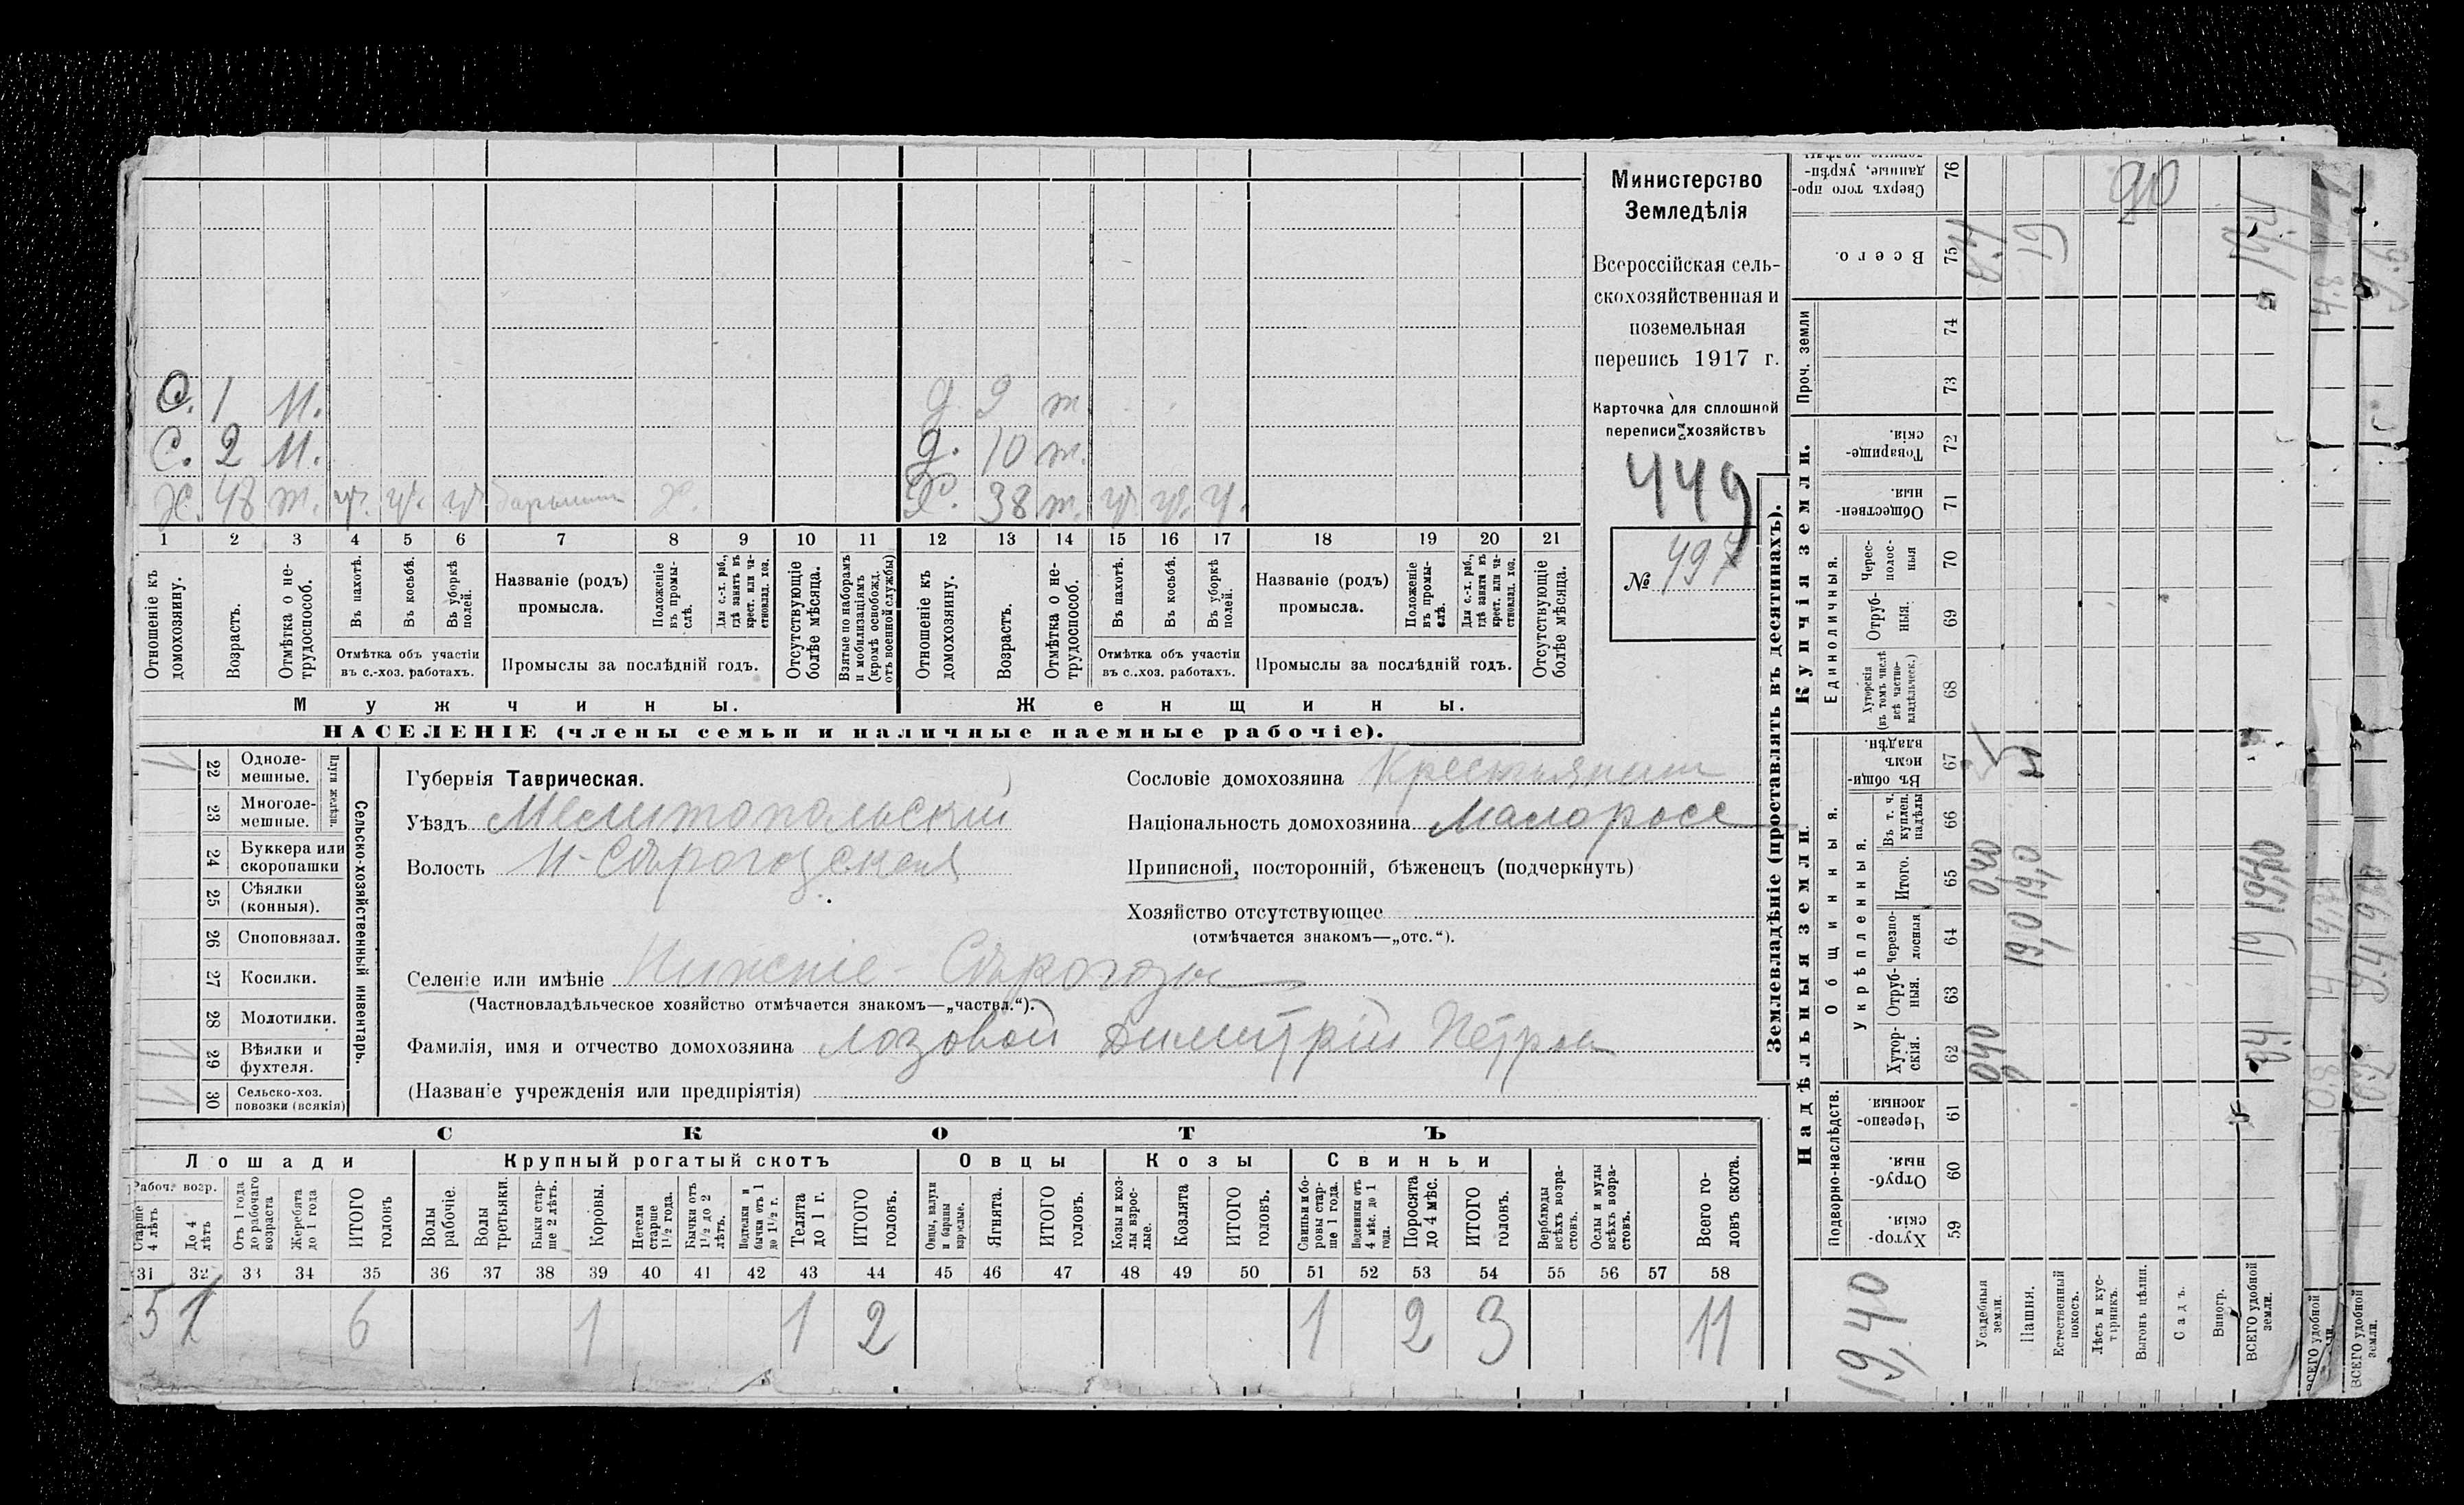 О. 1 М.
С. 2 М.
Х. 48 т. ч. ч. ч. Х.
д. 9 т
д. 10 т.
Х. 38 т. ч. ч. ч.
1 2 3 4 5 6 7 8 9 10 11 12 13 14 15 16 17 18 19 20 21
Отношеніе къ домохозяину.
Возрастъ.
Отмѣтка о не-трудоспособ.
Въ пахотѣ.
Въ косьбѣ.
Въ уборкѣ полей.
Отмѣтка объ участіи
въ с.-хоз. работахъ.
Названіе (родъ)
промысла.
Положеніе въ промы-слѣ.
Для с.-х. раб., гдѣ занятъ въ крест. или ча-стновлад. хоз.
Промыслы за послѣдній годъ.
Отсутствующіе болѣе мѣсяца.
Взятые по наборамъ и мобилизаціямъ (кромѣ освобожд. отъ военной службы)
Отношеніе къ домохозяину.
Возрастъ.
Отмѣтка о не-трудоспособ.
Въ пахотѣ.
Въ косьбѣ.
Въ уборкѣ полей.
Отмѣтка объ участіи
въ с..хоз. работахъ.
Названіе (родъ)
промысла.
Положеніе въ промы-слѣ.
Для с.-х. раб., гдѣ занята въ крест. или ча-стновлад. хоз.
Промыслы за послѣдній годъ.
Отсутствующіе болѣе мѣсяца.
Мужчины.
Женщины.
НАСЕЛЕНІЕ (члены семьи и наличные наемные рабочіе).
Министерство
Земледѣлія
Всероссійская сель-
скохозяйственная и
поземельная
перепись 1917 г.
Карточка для сплошной
переписи хозяйствъ
449
№ 497
22 Одноле-мешные.
23 Многоле-мешные.
Плуги желѣзн.
24 Буккера или скоропашки
25 Сѣялки (конныя).
26 Сноповязал.
27 Косилки.
28 Молотилки.
29 Вѣялки и фухтеля.
30 Сельско-хоз. повозки (всякія)
Сельско-хозяйственный инвентарь.
Губернія Таврическая.
Уѣздъ Мелитопольскій
Волость Н-Сѣрогозская
Сословіе домохозяина Крестьянин
Національность домохозяина Малоросс
Приписной, посторонній, бѣженецъ (подчеркнуть)
Хозяйство отсутствующее
(отмѣчается знакомъ—„отс.“).
Селеніе или имѣніе Нижніе-Сѣрогозы
(Частновладѣльческое хозяйство отмѣчается знакомъ—„частвл.“).
Фамилія, имя и отчество домохозяина Лозовой Димитрій Петров
(Названіе учрежденія или предпріятія)
СКОТЪ
Лошади
Крупный рогатый скотъ
Овцы
Козы
Свиньи
Рабоч. возр.
Старше 4 лѣтъ
До 4 лѣтъ
Отъ 1 года до рабочаго возраста
Жеребята до 1 года
ИТОГО головъ
Волы рабочіе.
Волы третьяки.
Быки стар-ше 2 лѣтъ.
Коровы.
Нетели старше 1½ года.
Бычки отъ 1½ до 2 лѣтъ.
Подтелки и бычки отъ 1 до 1½ г.
Телята до 1 г.
ИТОГО головъ.
Овцы, валухи и бараны взрослые.
Ягнята.
ИТОГО головъ.
Козы и коз-лы взрос-лые.
Козлята
ИТОГО головъ.
Свиньи и бо-ровы стар-ше 1 года.
Подсвинки отъ 4 мѣс. до 1 года.
Поросята до 4 мѣс.
ИТОГО головъ.
Верблюды всѣхъ возра-стовъ.
Ослы и мулы всѣхъ возра-стовъ.
Всего го-ловъ скота.
31 32 33 34 35 36 37 38 39 40 41 42 43 44 45 46 47 48 49 50 51 52 53 54 55 56 57 58
5 1 6 1 1 2 1 2 3 11
Землевладѣніе (проставлять въ десятинахъ).
Надѣльныя земли.
Купчія земли.
Проч. земли
Подворно-наслѣдств.
Общинныя.
Укрѣпленныя.
Единоличныя.
Хутор-скія.
Отруб-ныя.
Черезпо-лосныя.
Хутор-скія.
Отруб-ныя.
Черезпо-лосныя
Итого.
Въ т. ч. куплен. надѣлы
Въ общи-номъ владѣн.
Хуторскія (въ томъ числѣ всѣ частно-владѣльческ.)
Отруб-ныя.
Черес-полос-ныя
Обществен-ныя.
Товарище-скія.
Всего.
Сверхъ того про-данные, укрѣп-
59 60 61 62 63 64 65 66 67 68 69 70 71 72 73 74 75 76
19,40
Усадебныя земли.
040
0,40
Пашня.
19,0
19,0
19
Естественный покосъ.
Лѣсъ и кус-тарникъ.
Выгонъ цѣлин.
Садъ.
Виногр.
ВСЕГО удобной земли.
ВСЕГО удобной
ВСЕГО удобной земли.